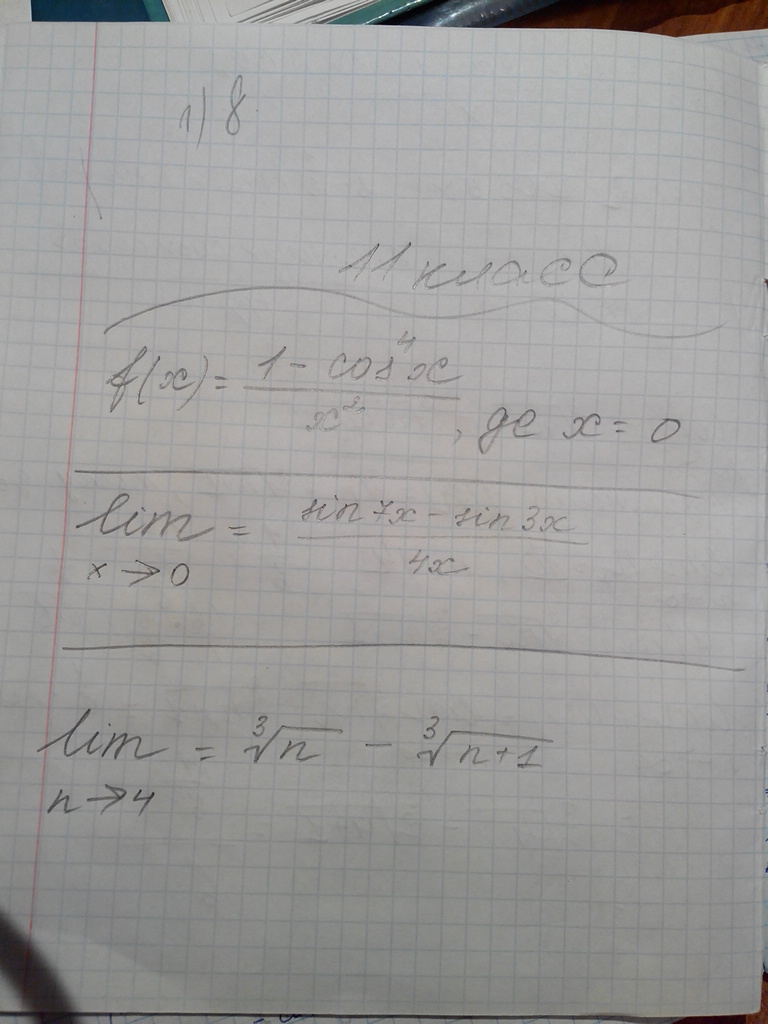 1) 8
11 класс
f(x) = \frac{1 - cos^4 x}{x^2}, де x = 0
lim_{x → 0} = \frac{sin 7x - sin 3x}{4x}
lim_{n → 4} = \sqrt[3]{n} - \sqrt[3]{n+1}